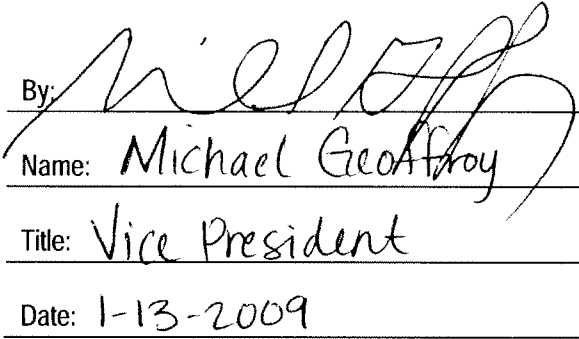 By:
Name: Michael Geoffroy
Title: Vice President
Date: 1-13-2009